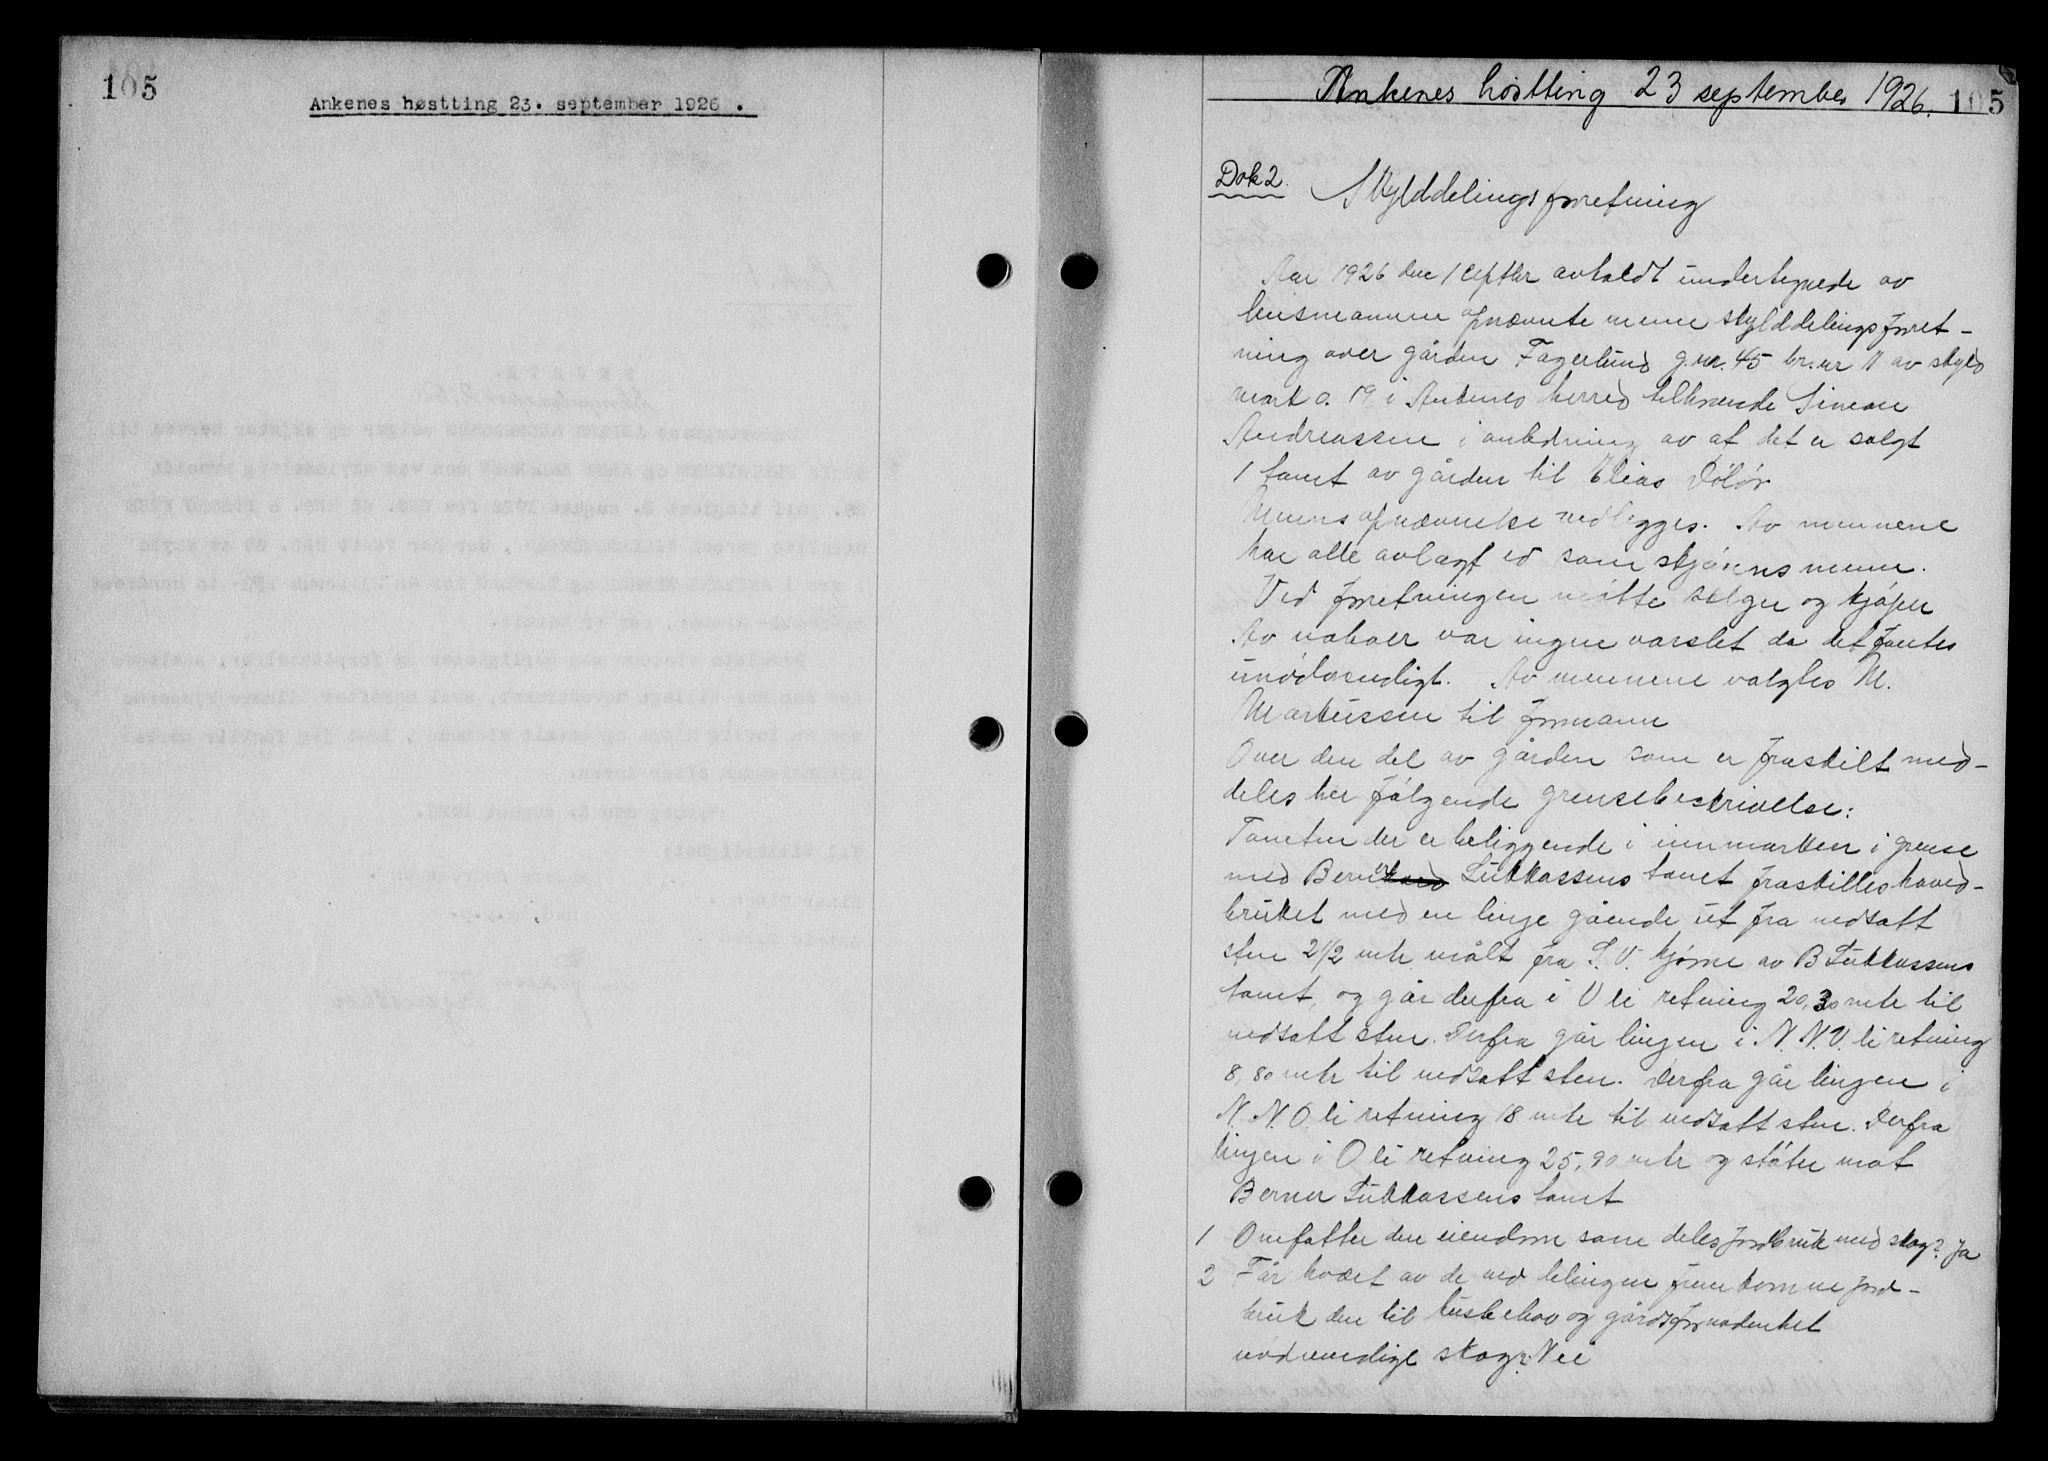 105
Ankenes høstting 23. september 1926 .
Ankenes høstting 23 september 1926. 105
Dok 2.
Skylddelingsforretning
Aar 1926 den 1 septbr avholdt undertegnede av
lensmannen opnævnte menn skylddelingsforret-
ning over gården Fagerlund g.nr. 45 br.nr 11 av skyld
mark o. 19 i Ankenes herred tilhørende Simon
Andreassen i anledning av at det er solgt
1 tomt av gården til Elias
Menns opnævnelse vedlegges. Av mennene
har alle avlagt ed som skjønsmenn.
Ved forretningen møtte selger og kjøper
Av naboer var ingen varslet da det fantes
unødvendigt. Av mennene valgtes M.
Markussen til formann
Over den del av gården som er fraskilt med-
deles her følgende grensebeskrivelse:
Tomten der er beliggende i innmarken i grense
med Berner Lukkassens tomt fraskilles hoved-
bruket med en linje gående ut fra nedsatt
sten 2 1/2 mtr målt fra S.V. hjørne av B Lukkassens
tomt, og går derfra i V li retning 20,30 mtr til
nedsatt sten. Derfra går linjen i N.N.V. li retning
8,80 mtr til nedsatt sten. Derfra går linjen i
N.N.O li retning 18 mtr til nedsatt sten. Derfra
linjen i O li retning 25,90 mtr og støter mot
Berner Lukkassens tomt
1 Omfatter den eiendom som deles jordbruk med skog? Ja
2 Får hvært av de ved delingen fremkomne jord-
bruk den til husbehov og gårdsfornødenhet
nødvendige skog? Nei